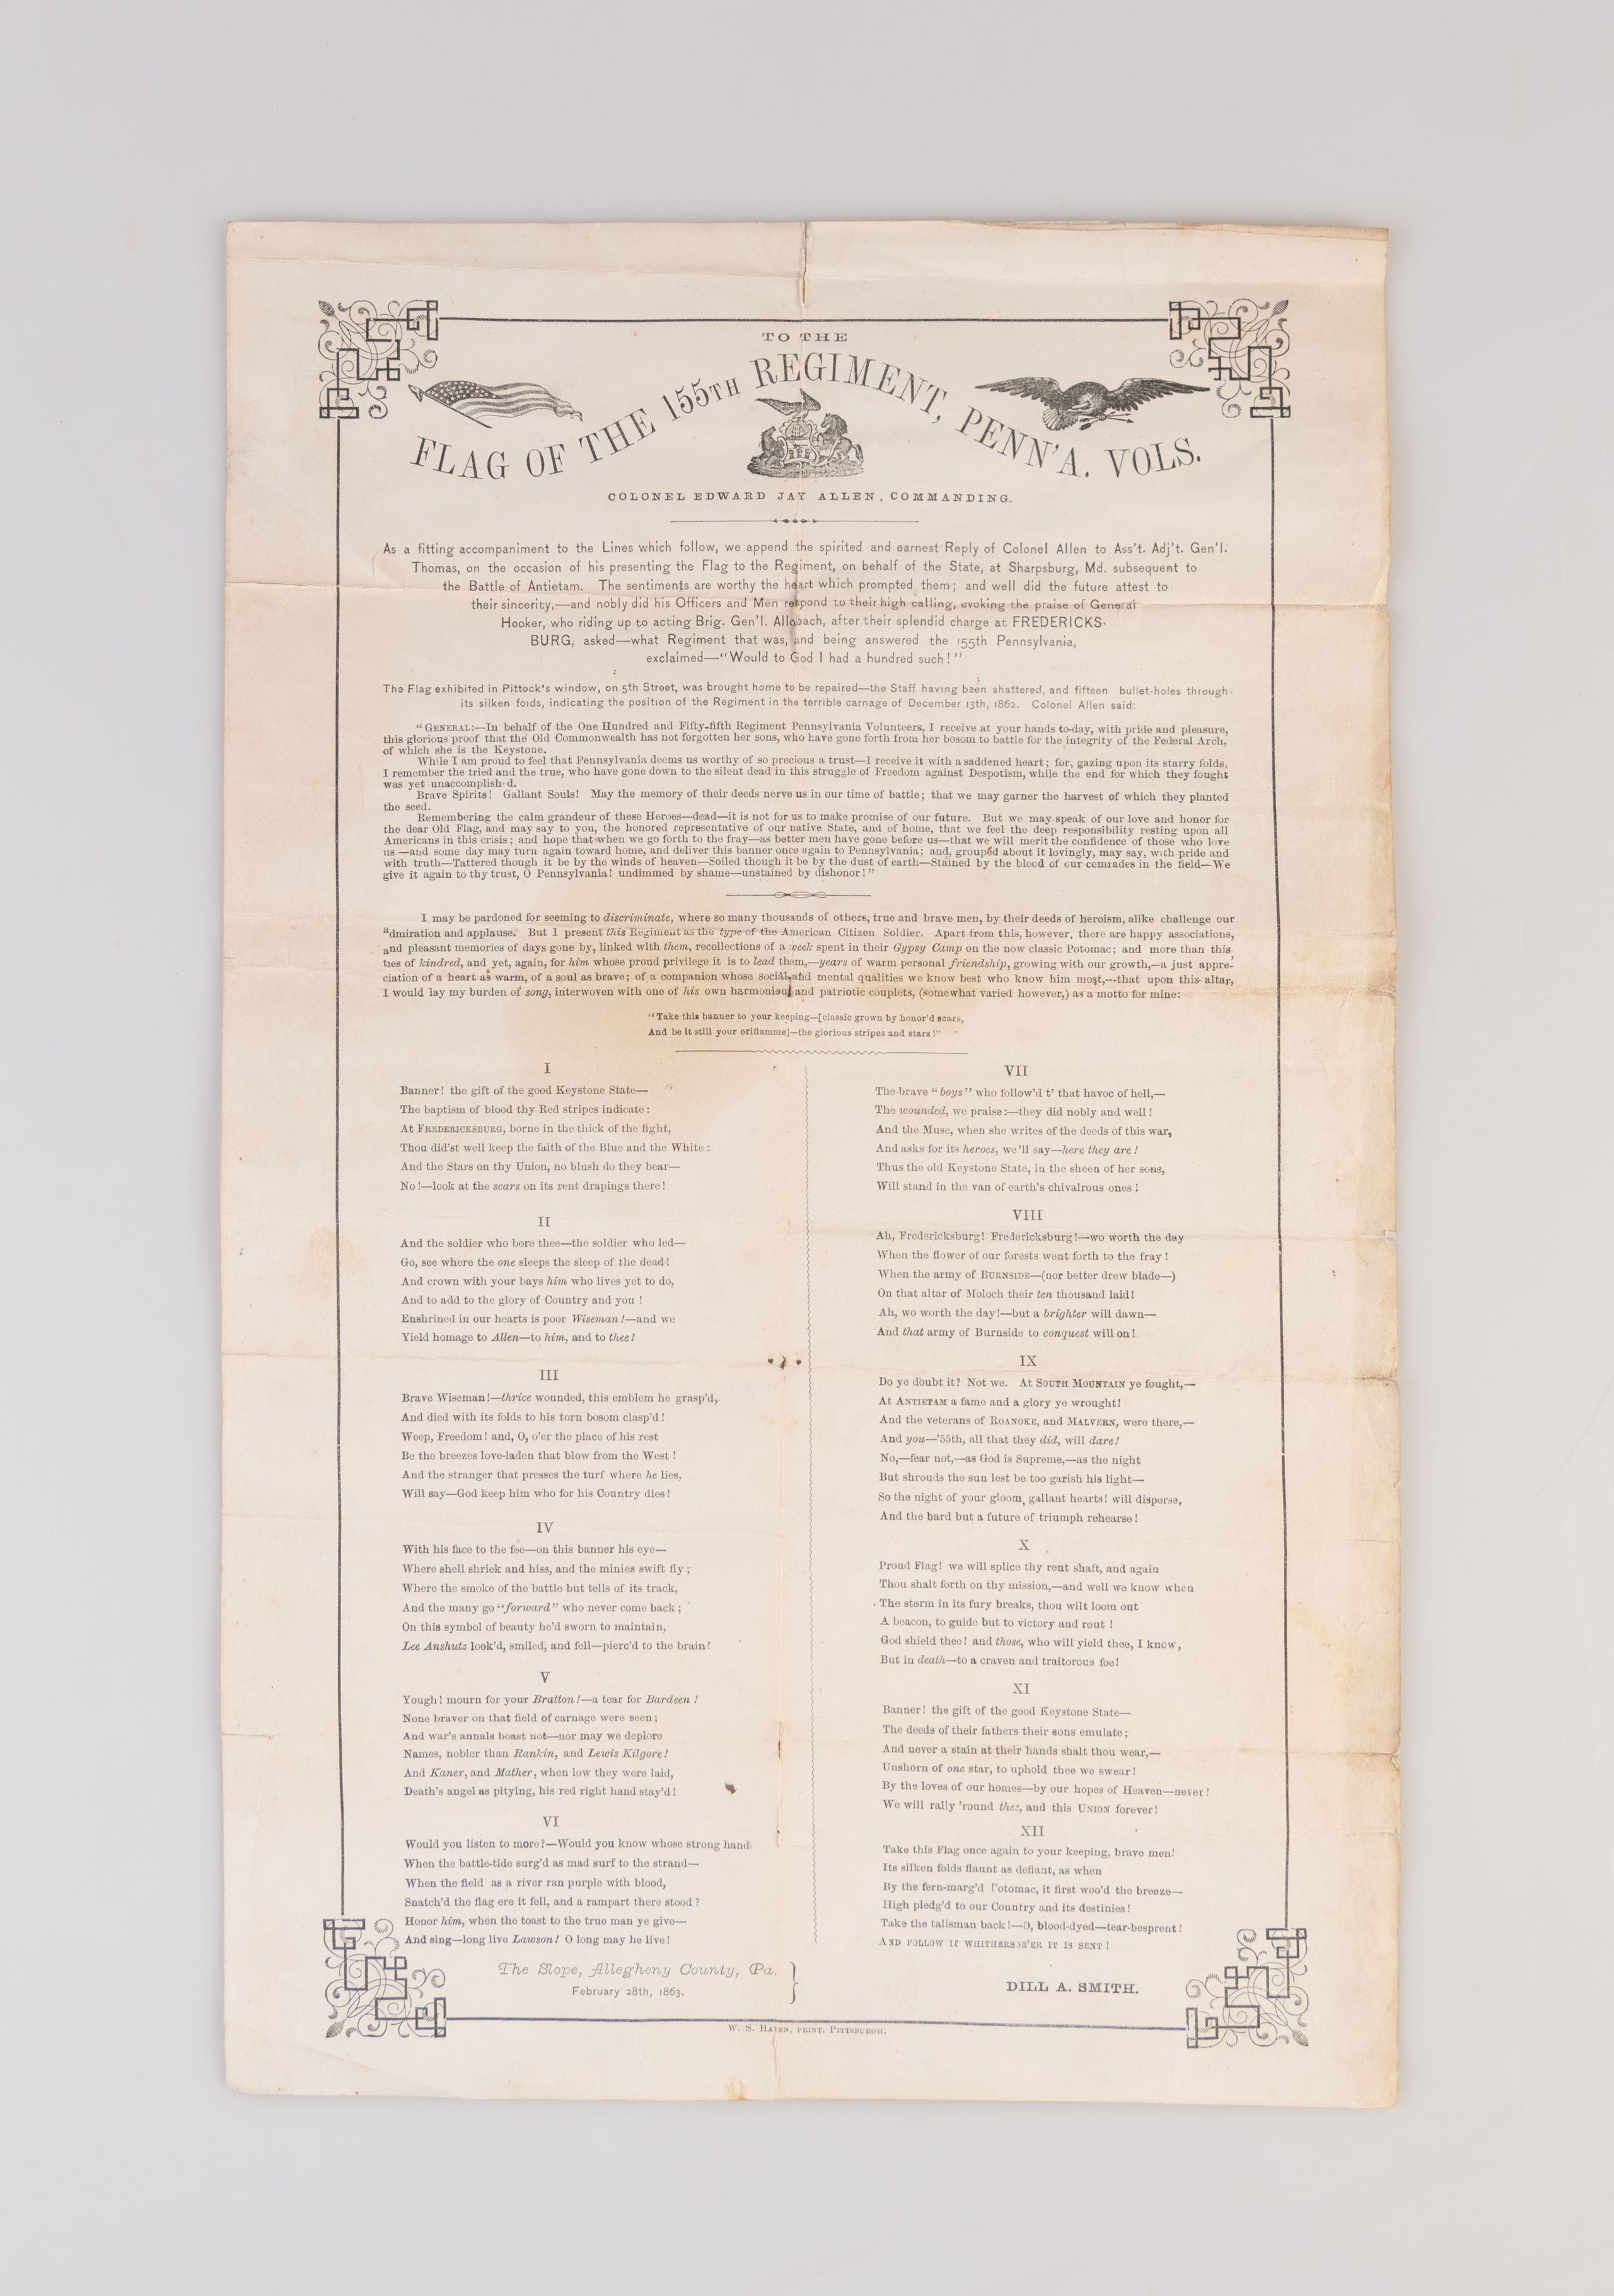 TO THE
FLAG OF THE 155TH REGIMENT, PENN'A. VOLS.
COLONEL EDWARD JAY ALLEN, COMMANDING.
As a fitting accompaniment to the Lines which follow, we append the spirited and earnest Reply of Colonel Allen to Ass't. Adj't. Gen'l.
Thomas, on the occasion of his presenting the Flag to the Regiment, on behalf of the State, at Sharpsburg, Md. subsequent to
the Battle of Antietam. The sentiments are worthy the heart which prompted them; and well did the future attest to
their sincerity,—and nobly did his Officers and Men respond to their high calling, evoking the praise of General
Hooker, who riding up to acting Brig. Gen'l. Allabach, after their splendid charge at FREDERICKS-
BURG, asked—what Regiment that was, and being answered the 155th Pennsylvania,
exclaimed—"Would to God I had a hundred such!"
The Flag exhibited in Pittock's window, on 5th Street, was brought home to be repaired—the Staff having been shattered, and fifteen bullet-holes through
its silken folds, indicating the position of the Regiment in the terrible carnage of December 13th, 1862. Colonel Allen said:
"GENERAL:—In behalf of the One Hundred and Fifty-fifth Regiment Pennsylvania Volunteers, I receive at your hands to-day, with pride and pleasure,
this glorious proof that the Old Commonwealth has not forgotten her sons, who have gone forth from her bosom to battle for the integrity of the Federal Arch,
of which she is the Keystone.
While I am proud to feel that Pennsylvania deems us worthy of so precious a trust—I receive it with a saddened heart; for, gazing upon its starry folds,
I remember the tried and the true, who have gone down to the silent dead in this struggle of Freedom against Despotism, while the end for which they fought
was yet unaccomplished.
Brave Spirits! Gallant Souls! May the memory of their deeds nerve us in our time of battle; that we may garner the harvest of which they planted
the seed.
Remembering the calm grandeur of these Heroes—dead—it is not for us to make promise of our future. But we may speak of our love and honor for
the dear Old Flag, and may say to you, the honored representative of our native State, and of home, that we feel the deep responsibility resting upon all
Americans in this crisis; and hope that when we go forth to the fray—as better men have gone before us—that we will merit the confidence of those who love
us—and some day may turn again toward home, and deliver this banner once again to Pennsylvania; and, grouped about it lovingly, may say, with pride and
with truth—Tattered though it be by the winds of heaven—Soiled though it be by the dust of earth—Stained by the blood of our comrades in the field—We
give it again to thy trust, O Pennsylvania! undimmed by shame—unstained by dishonor!"
I may be pardoned for seeming to discriminate, where so many thousands of others, true and brave men, by their deeds of heroism, alike challenge our
admiration and applause. But I present this Regiment as the type of the American Citizen Soldier. Apart from this, however, there are happy associations,
and pleasant memories of days gone by, linked with them, recollections of a week spent in their Gypsy Camp on the now classic Potomac; and more than this
ties of kindred, and yet, again, for him whose proud privilege it is to lead them,—years of warm personal friendship, growing with our growth,—a just appre-
ciation of a heart as warm, of a soul as brave; of a companion whose social and mental qualities we know best who know him most,—that upon this altar,
I would lay my burden of song, interwoven with one of his own harmonious and patriotic couplets, (somewhat varied however,) as a motto for mine:
"Take this banner to your keeping—[classic grown by honor'd scars,
And be it still your oriflamme]—the glorious stripes and stars!"
I
Banner! the gift of the good Keystone State—
The baptism of blood thy Red stripes indicate:
At FREDERICKSBURG, borne in the thick of the fight,
Thou did'st well keep the faith of the Blue and the White:
And the Stars on thy Union, no blush do they bear—
No!—look at the scars on its rent drapings there!
II
And the soldier who bore thee—the soldier who led—
Go, see where the one sleeps the sleep of the dead!
And crown with your bays him who lives yet to do,
And to add to the glory of Country and you!
Enshrined in our hearts is poor Wiseman!—and we
Yield homage to Allen—to him, and to thee!
III
Brave Wiseman!—thrice wounded, this emblem he grasp'd,
And died with its folds to his torn bosom clasp'd!
Weep, Freedom! and, O, o'er the place of his rest
Be the breezes love-laden that blow from the West!
And the stranger that presses the turf where he lies,
Will say—God keep him who for his Country dies!
IV
With his face to the foe—on this banner his eye—
Where shell shriek and hiss, and the minies swift fly;
Where the smoke of the battle but tells of its track,
And the many go "forward" who never come back;
On this symbol of beauty he'd sworn to maintain,
Lee Anshutz look'd, smiled, and fell—pierc'd to the brain!
V
Yough! mourn for your Bratton!—a tear for Bardeen!
None braver on that field of carnage were seen;
And war's annals boast not—nor may we deplore
Names, nobler than Rankin, and Lewis Kilgore!
And Kaner, and Mather, when low they were laid,
Death's angel as pitying, his red right hand stay'd!
VI
Would you listen to more?—Would you know whose strong hand
When the battle-tide surg'd as mad surf to the strand—
When the field as a river ran purple with blood,
Snatch'd the flag ere it fell, and a rampart there stood?
Honor him, when the toast to the true man ye give—
And sing—long live Lawson! O long may he live!
VII
The brave "boys" who follow'd t' that havoc of hell,—
The wounded, we praise:—they did nobly and well!
And the Muse, when she writes of the deeds of this war,
And asks for its heroes, we'll say—here they are!
Thus the old Keystone State, in the sheen of her sons,
Will stand in the van of earth's chivalrous ones!
VIII
Ah, Fredericksburg! Fredericksburg!—wo worth the day
When the flower of our forests went forth to the fray!
When the army of BURNSIDE—(nor better drew blade—)
On that altar of Moloch their ten thousand laid!
Ah, wo worth the day!—but a brighter will dawn—
And that army of Burnside to conquest will on!
IX
Do ye doubt it? Not we. At SOUTH MOUNTAIN ye fought,—
At ANTIETAM a fame and a glory ye wrought!
And the veterans of ROANOKE, and MALVERN, were there,—
And you—'55th, all that they did, will dare!
No,—fear not,—as God is Supreme,—as the night
But shrouds the sun lest be too garish his light—
So the night of your gloom, gallant hearts! will disperse,
And the bard but a future of triumph rehearse!
X
Proud Flag! we will splice thy rent shaft, and again
Thou shalt forth on thy mission,—and well we know when
The storm in its fury breaks, thou wilt loom out
A beacon, to guide but to victory and rout!
God shield thee! and those, who will yield thee, I know,
But in death—to a craven and traitorous foe!
XI
Banner! the gift of the good Keystone State—
The deeds of their fathers their sons emulate;
And never a stain at their hands shalt thou wear,—
Unshorn of one star, to uphold thee we swear!
By the loves of our homes—by our hopes of Heaven—never!
We will rally 'round thee, and this UNION forever!
XII
Take this Flag once again to your keeping, brave men!
Its silken folds flaunt as defiant, as when
By the fern-marg'd Potomac, it first woo'd the breeze—
High pledg'd to our Country and its destinies!
Take the talisman back!—O, blood-dyed—tear-besprent!
AND FOLLOW IT WHITHERSOE'ER IT IS SENT!
The Slope, Allegheny County, Pa.
February 28th, 1863.
DILL A. SMITH.
W. S. HAVEN, PRINT. PITTSBURGH.